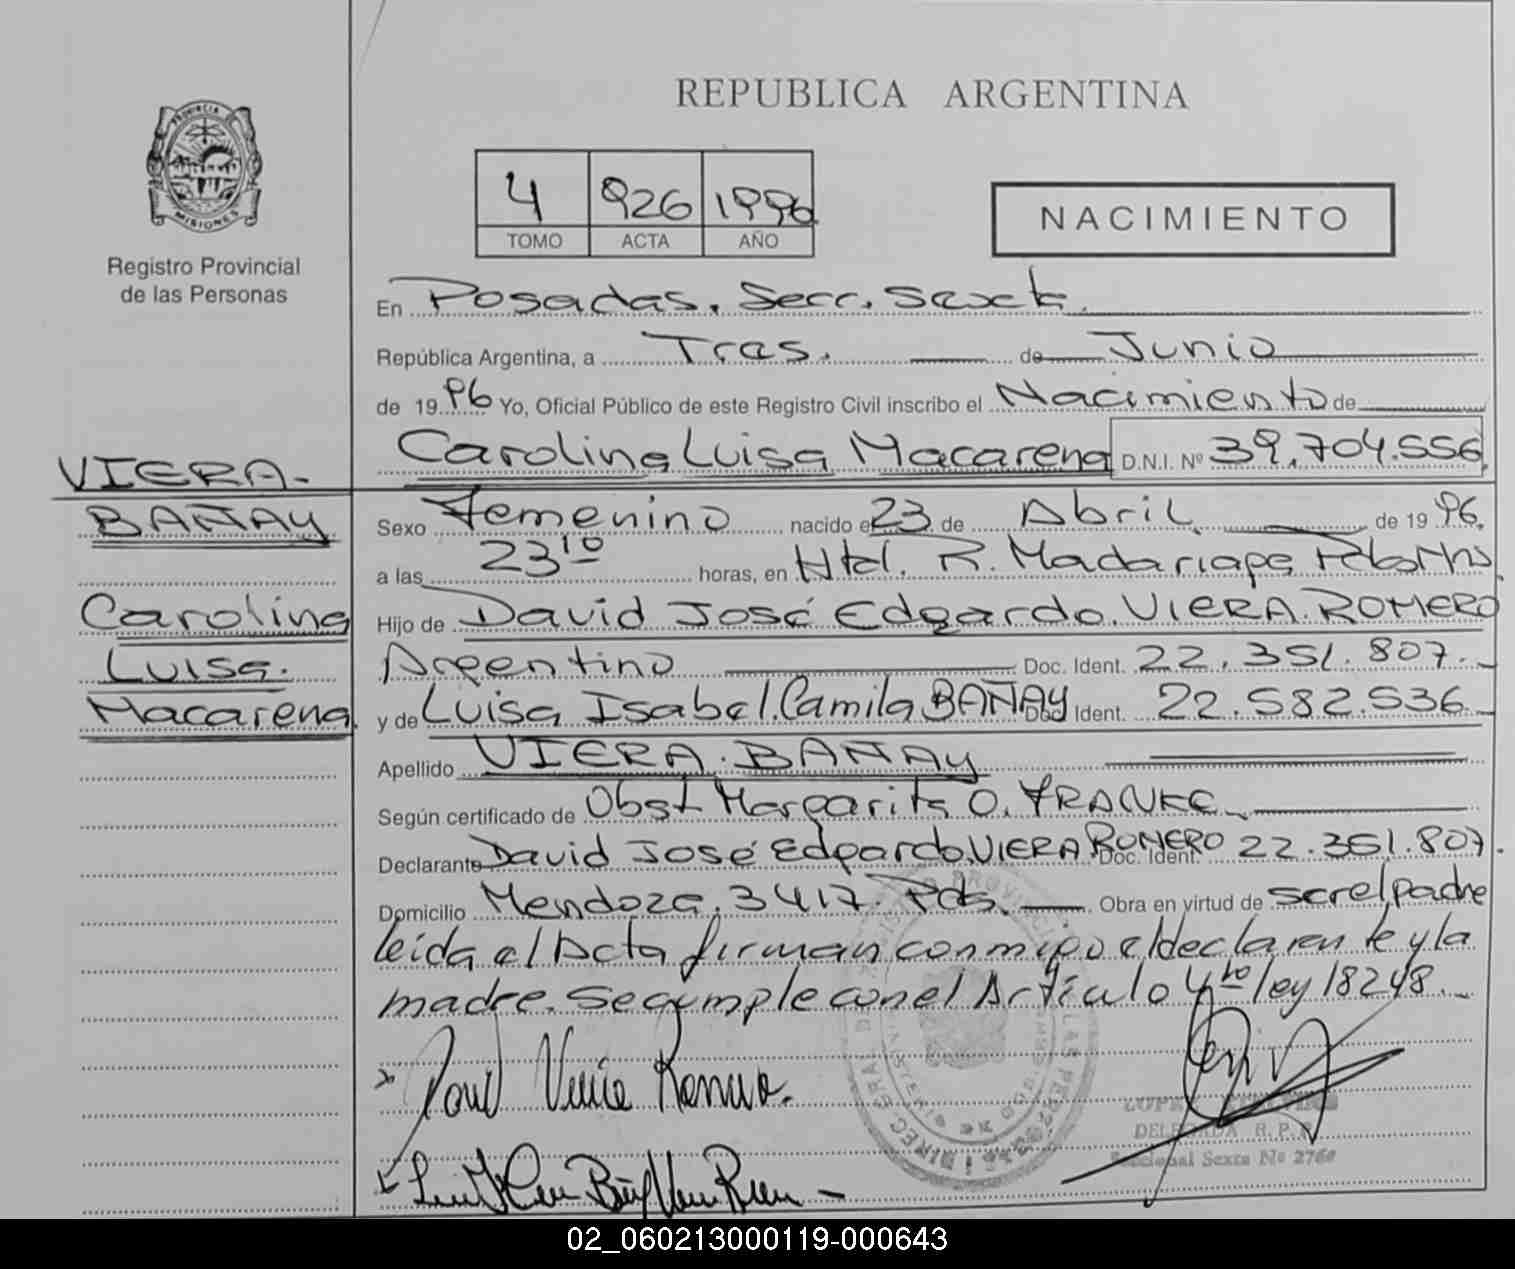 REPUBLICA ARGENTINA
PROVINCIA DE
MISIONES
Registro Provincial
de las Personas
4 926 1996
TOMO ACTA AÑO
NACIMIENTO
En Posadas. Secc. Sexta.
República Argentina, a Tres. de Junio
de 1996 Yo, Oficial Público de este Registro Civil inscribo el Nacimiento de
Carolina Luisa Macarena D.N.I. Nº 39.704.556
VIERA.
BAÑAY
Carolina
Luisa.
Macarena.
Sexo Femenino nacido el 23 de Abril de 1996.
a las 23 10 horas, en Htal. R. Madariaga
Hijo de David José Edgardo. VIERA. ROMERO
Argentino Doc. Ident. 22.351.807.
y de Luisa Isabel. Camila BAÑAY Doc. Ident. 22.582.536.
Apellido VIERA. BAÑAY
Según certificado de Obst Margarita O. FRANKE.
Declarante David José Edgardo. VIERA ROMERO Doc. Ident. 22.351.807.
Domicilio Mendoza. 3417. Pdas. Obra en virtud de ser el padre
leida el Acta firman conmigo el declarante y la
madre. Se cumple con el Artículo 4to ley 18248.
DELEGADA R.P.P.
Seccional Sexta Nº 2764
02_060213000119-000643